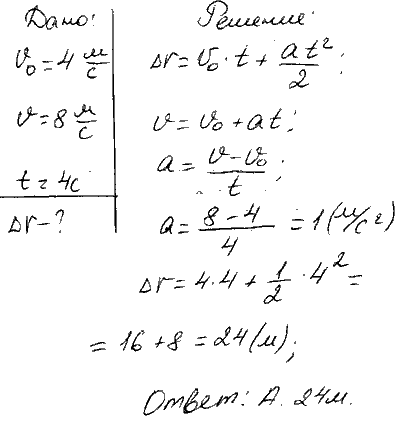 Дано:
v₀ = 4 м/с
v = 8 м/с
t = 4с
Δr - ?
Решение:
Δr = v₀ · t + at²/2;
v = v₀ + at;
a = (v - v₀)/t;
a = (8 - 4)/4 = 1 (м/с²)
Δr = 4.4 + 1/2 · 4² =
= 16 + 8 = 24 (м);
Ответ: А. 24м.